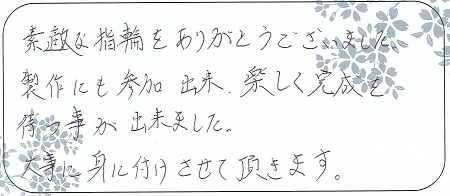 素敵な指輪をありがとうございました。
製作にも参加出来、楽しく完成を
待つ事が出来ました。
大事に身に付けさせて頂きます。